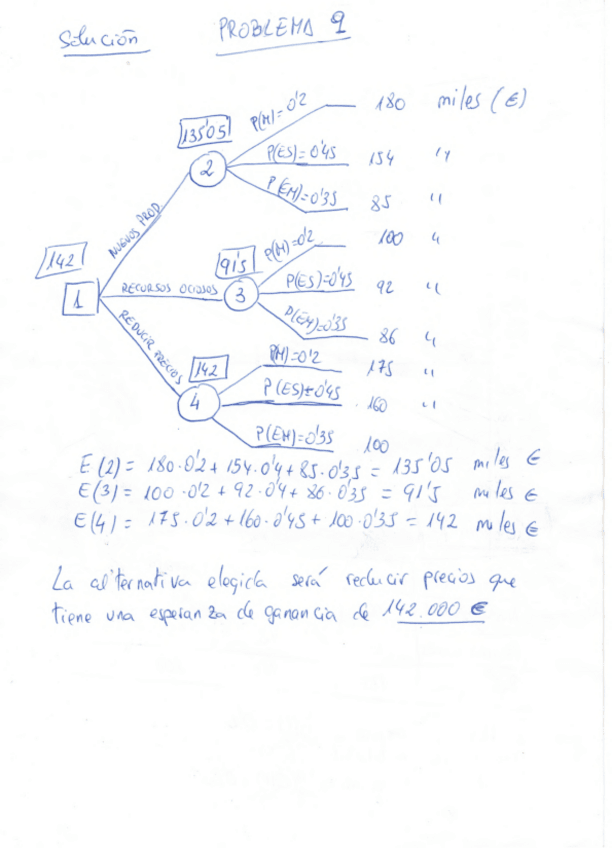 Solución PROBLEMA 9
P(M)=0'2 180 miles (€)
135'05
2 P(ES)=0'45 154 "
P(EM)=0'35 85 "
NUEVOS PROD.
P(M)=0'2 100 "
142 91'5
1 RECURSOS OCIOSOS 3 P(ES)=0'45 92 "
P(EM)=0'35 86 "
REDUCIR PRECIOS
142 P(M)=0'2 175 "
4 P(ES)=0'45 160 "
P(EM)=0'35 100
E(2) = 180·0'2 + 154·0'4 + 85·0'35 = 135'05 miles €
E(3) = 100·0'2 + 92·0'4 + 86·0'35 = 91'5 miles €
E(4) = 175·0'2 + 160·0'45 + 100·0'35 = 142 miles €
La alternativa elegida será reducir precios que
tiene una esperanza de ganancia de 142.000 €